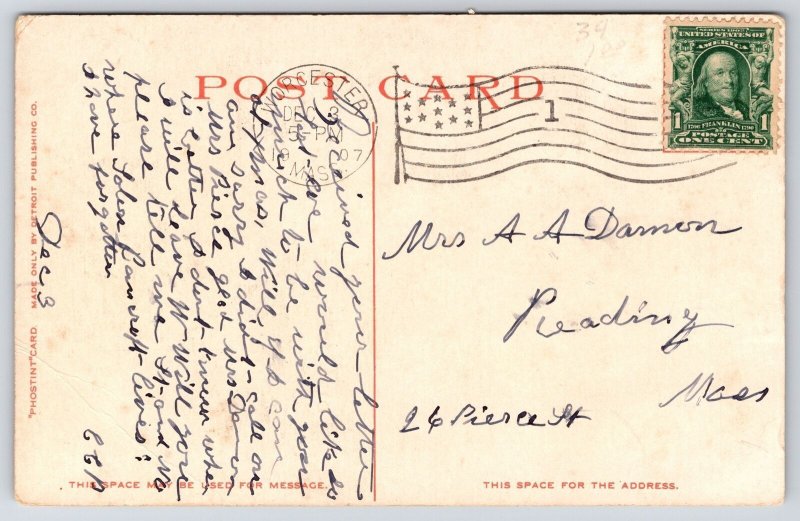 POST CARD
WORCESTER
DEC 3
5 P
1907
MASS
1
SERIES 1902
UNITED STATES OF
AMERICA
1706 FRANKLIN 1790
1 1
POSTAGE
ONE CENT
34
Received your letter
last eve would like so
much to be with you
at Xmas, Will if I can
am sorry I didn't call on
Mrs Pierce glad Mrs Damon
is better, I don't know when
I will leave W Will you
please tell me St and No
where John Bancroft lives?
I have forgotten
C C D
Dec 3
Mrs A A Damon
Reading
Mass
26 Pierce St
"PHOSTINT" CARD. MADE ONLY BY DETROIT PUBLISHING CO.
THIS SPACE MAY BE USED FOR MESSAGE.
THIS SPACE FOR THE ADDRESS.